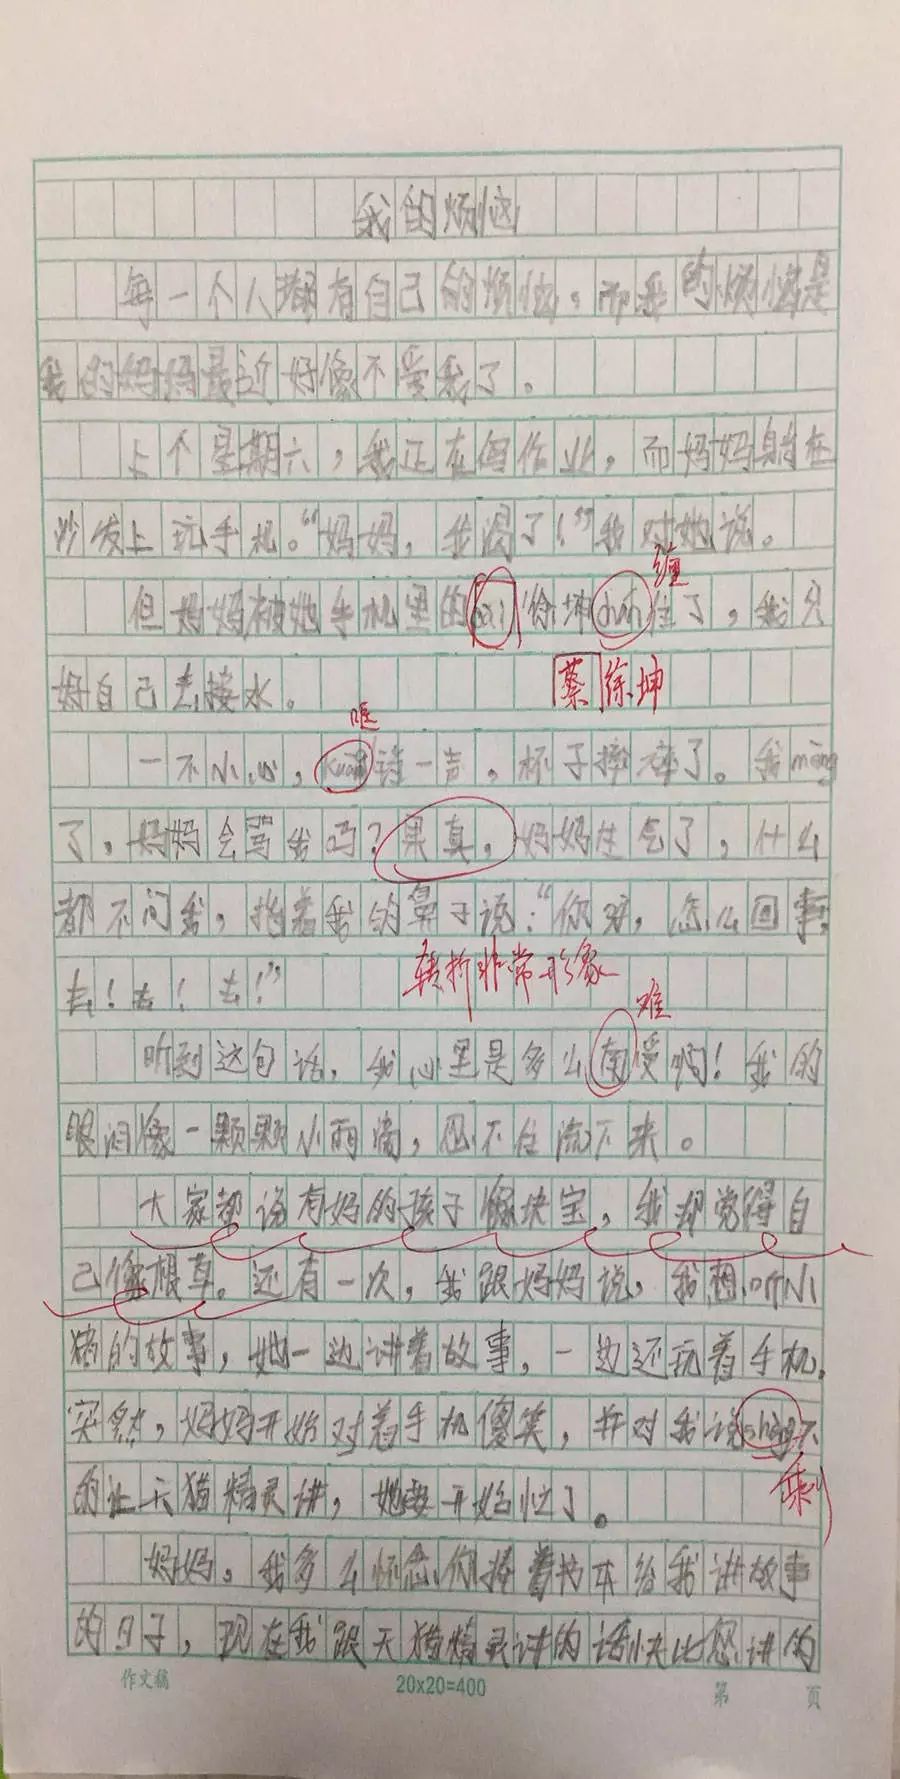 我的烦恼
每一个人都有自己的烦恼，而我的烦恼是
我的妈妈最近好像不爱我了。
上个星期六，我正在写作业，而妈妈躺在
沙发上玩手机。“妈妈，我渴了！”我对她说。
缠
但妈妈被她手机里的cai徐坤chan住了，我只
好自己去接水。
蔡徐坤
哐
一不小心，kuang铛一声，杯子摔碎了。我mēng
了，妈妈会骂我吗？果真，妈妈生气了，什么
都不问我，指着我的鼻子说：“你呀，怎么回事，
去！去！去！”
转折非常形象
难
听到这句话，我心里是多么南受啊！我的
眼泪像一颗颗小雨滴，忍不住流下来。
大家都说有妈的孩子像块宝，我却觉得自
己像根草。还有一次，我跟妈妈说，我想听小
猪的故事，她一边讲着故事，一边还玩着手机。
突然，妈妈开始对着手机傻笑，并对我说sheng下
剩
的让天猫精灵讲，她要开始忙了。
妈妈。我多么怀念你捧着书本给我讲故事
的日子，现在我跟天猫精灵讲的话快比您讲的
作文稿 20x20=400 第 页